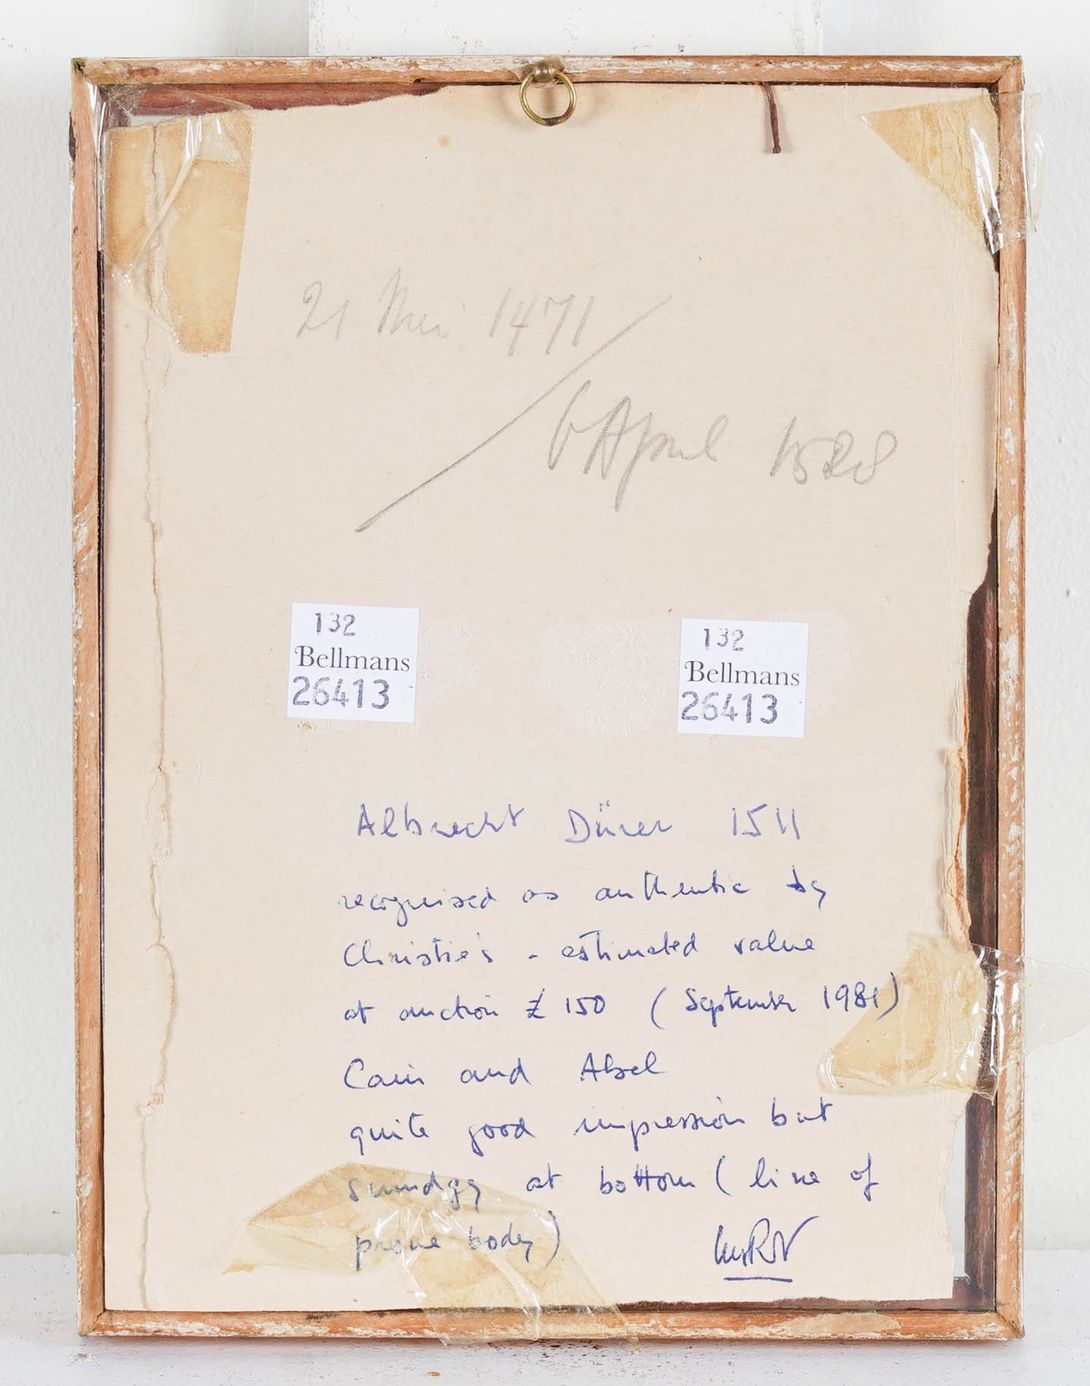 21 Mai 1471
6 April 1528
132
Bellmans
26413
132
Bellmans
26413
Albrecht Dürer 1511
recognised as authentic by
Christie's - estimated value
at auction £ 150 (September 1981)
Cain and Abel
quite good impression but
smudgy at bottom (line of
prone body)